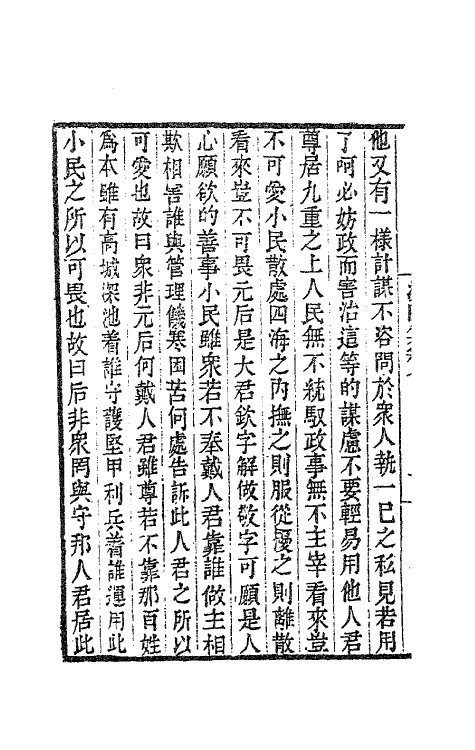 他又有一樣計謀不咨問於衆人執一己之私見若用
了呵必妨政而害治這等的謀慮不要輕易用他人君
尊居九重之上人民無不統馭政事無不主宰看來豈
不可愛小民散處四海之內撫之則服從擾之則離散
看來豈不可畏元后是大君欽字解做敬字可願是人
心願欲的善事小民雖衆若不奉戴人君靠誰做主相
欺相害誰與管理饑寒困苦何處告訴此人君之所以
可愛也故曰衆非元后何戴人君雖尊若不靠那百姓
爲本雖有高城深池着誰守護堅甲利兵着誰運用此
小民之所以可畏也故曰后非衆罔與守那人君居此